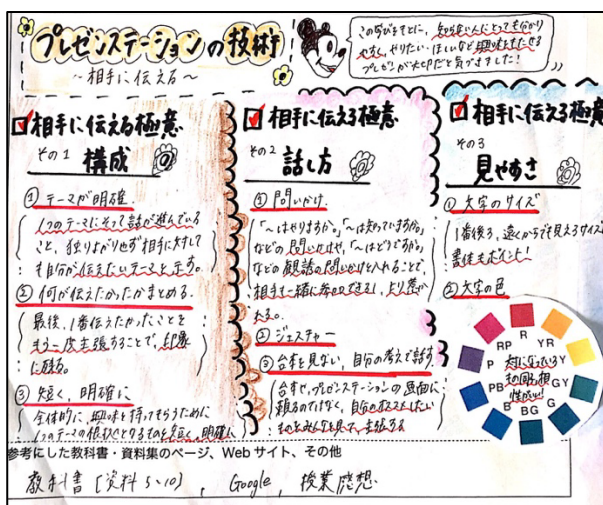 プレゼンステーションの技術
～相手に伝える～
この学びをもとに、知らない人にとっても分かり
やすく、やりたい・ほしいなど興味をもたせる
プレゼンが大切だと気づきました!
相手に伝える極意
その1 構成
① テーマが明確
1つのテーマにそって話が進んでいる
こと、独りよがりせず相手に対して
も自分が伝えたいテーマを示す。
② 何が伝えたかったかまとめる
最後、1番伝えたかったことを
もう一度主張することで、印象
に残る。
③ 短く、明確に
全体的に、興味を持ってもらうために
1つのテーマの根拠となるものを短く、明確に
相手に伝える極意
その2 話し方
① 問いかけ
「～はやりますか。」「～は知っていますか。」
などの問いかけや、「～はどうですか。」
などの
問いかけを入れることで、
相手も一緒に
② ジェスチャー
③ 台本を見ない、自分の考えで話す
台本、プレゼンステーションの画面に
頼るのではなく、自分の
ものをみんなを見て、主張する
相手に伝える極意
その3 見やすさ
① 文字のサイズ
1番後ろ、遠くからでも見えるサイズ
書体もポイント!
② 文字の色
R
YR
Y
GY
G
BG
B
PB
P
RP
対になっている
もの同士相
性がいい!
参考にした教科書・資料集のページ、Web サイト、その他
教科書[資料5~10], Google, 授業感想